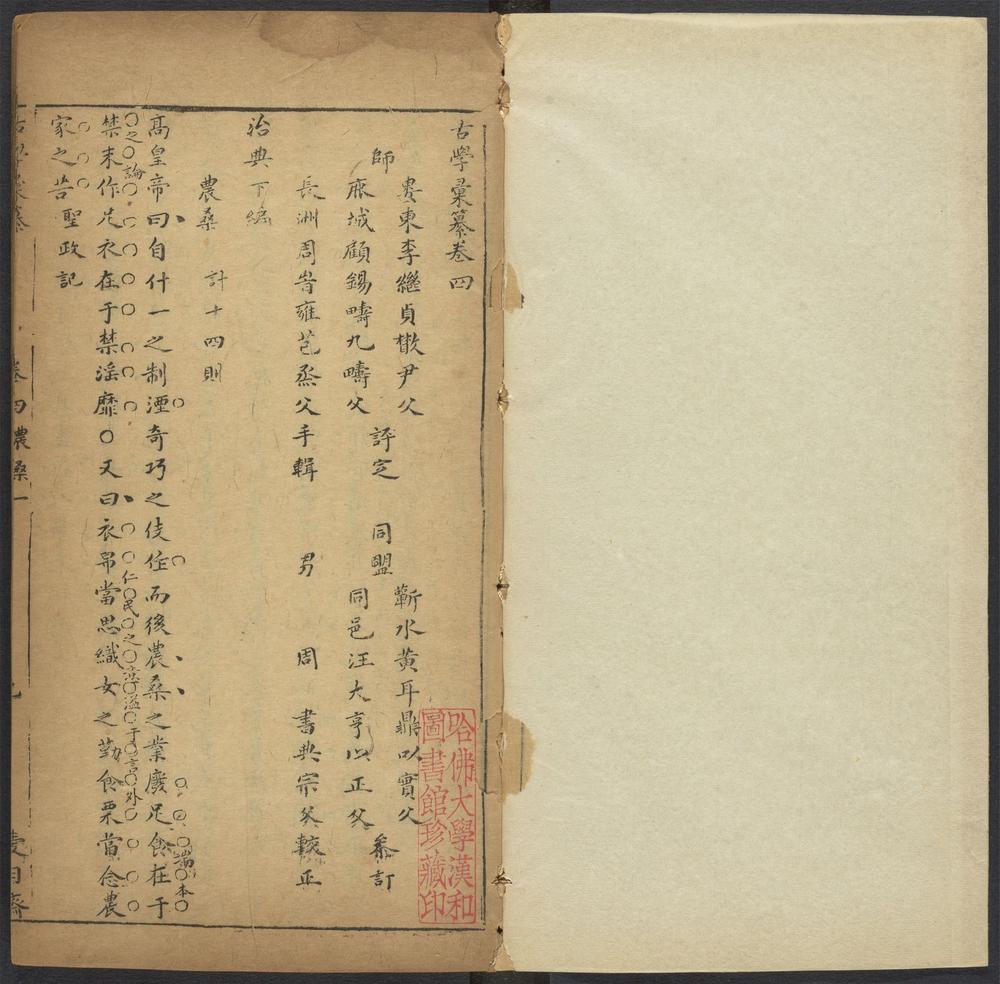 古學彙纂卷四
婁東李繼貞樕尹父
師
麻城顧錫疇九疇父
評定
同盟
蘄水黃耳鼎以實父
同邑汪大亨以正父
叅訂
長洲周旹雍芑烝父手輯
男
周
書典宗父較正
治典下編
農桑 計十四則
高皇帝曰自什一之制湮奇巧之伎作而後農桑之業廢足食在于
端本之論
禁末作足衣在于禁淫靡○又曰衣帛當思織女之勤食粟當念農
仁民之意溢于言外
家之苦聖政記
古學彙纂
卷四農桑一
哈佛大學漢和
圖書館珍藏印